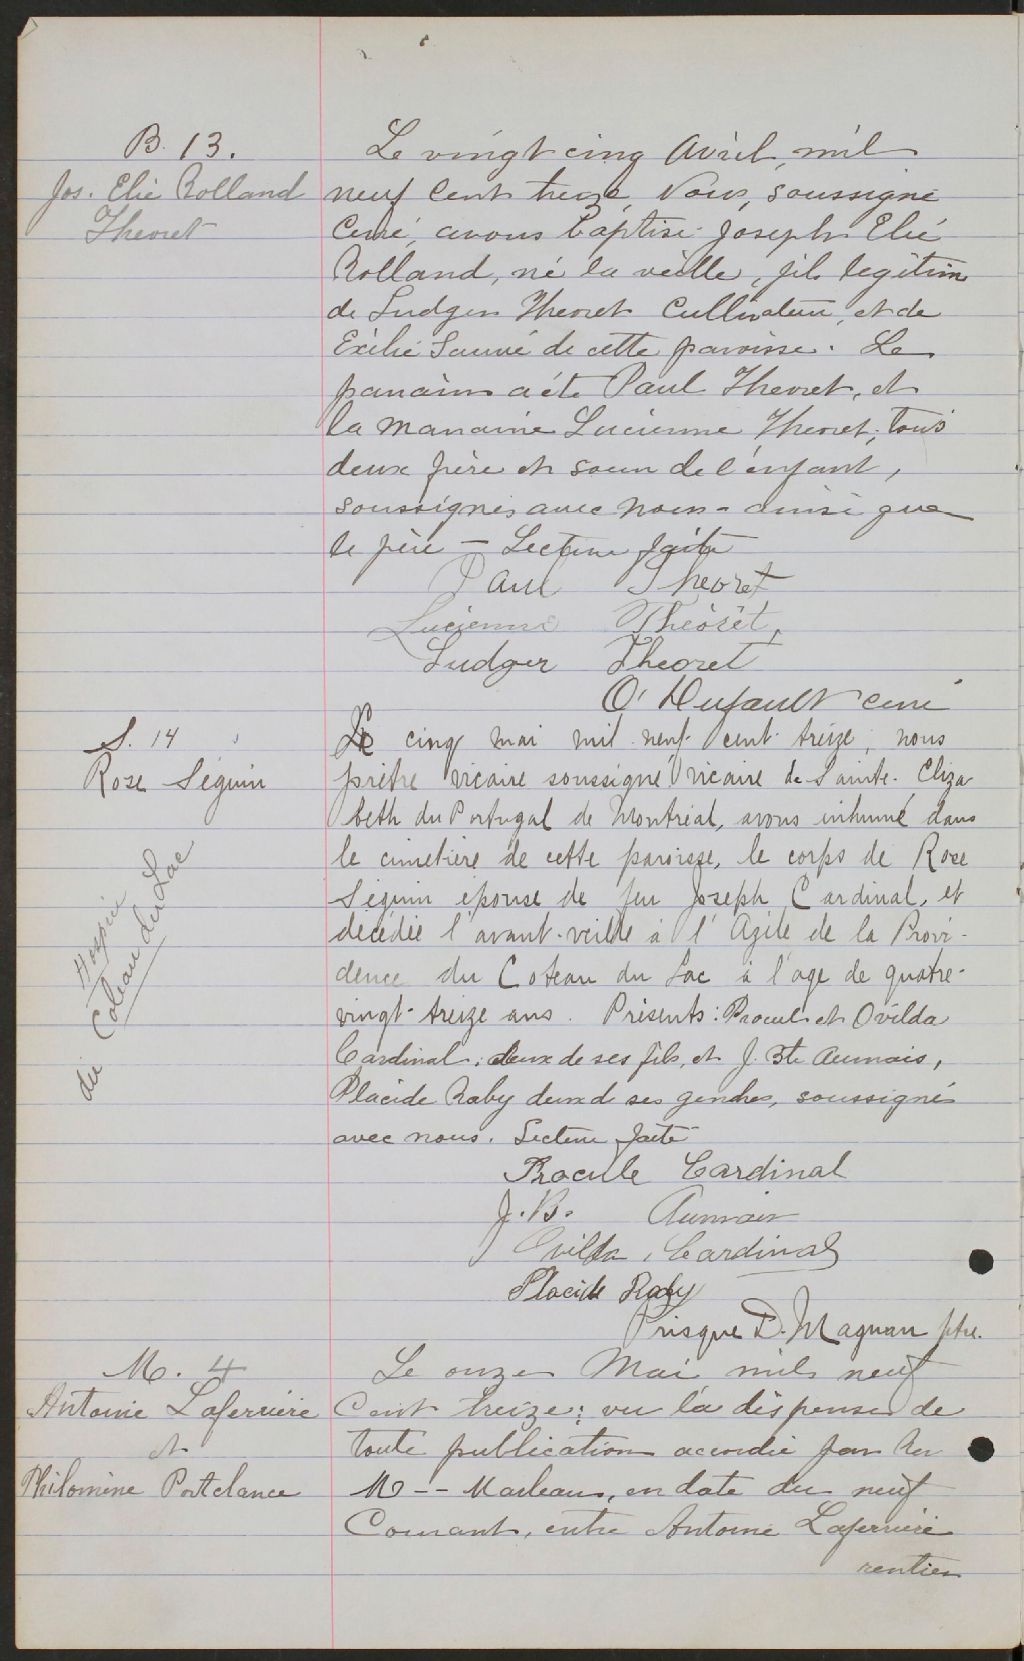 B. 13.
Jos. Elie Rolland
Theoret
Le vingt cinq Avril, mil
neuf Cent treize, Nous, soussigné
Curé, avons baptisé Joseph Elié
Rolland, né la veille, fils legitim
de Ludger Theoret Cultivateur, et de
Exilié Sauvé de cette paroisse. Le
parrain a été Paul Theoret, et
la marraine Lucienne Theoret, tous
deux frère et soeur de l'enfant,
soussignés avec nous - ainsi que
le père - Lecture faite
Paul Theoret
Lucienne Théorêt,
Ludger Theoret
O. Dufault curé
S. 14
Rose Séguin
Hospice
du Coteau du Lac
Le cinq mai mil neuf cent treize, nous
prêtre vicaire soussigné vicaire de Sainte-Eliza
beth du Portugal de Montréal, avons inhumé dans
le cimetière de cette paroisse, le corps de Rose
Séguin épouse de feu Joseph Cardinal, et
décédée l'avant-veille à l'Azile de la Provi-
dence du Coteau du Lac à l'age de quatre-
vingt-treize ans. Présents: Procule et Ovilda
Cardinal, deux de ses fils, et J. Bte Aumais,
Placide Raby deux de ses gendres, soussignés
avec nous. Lecture faite
Procule Cardinal
J. B. Aumais
Ovilda Cardinal
Placide Raby
Prisque D. Magnan ptre.
M. 4
Antoine Laferrière
et
Philomène Portelance
Le onze Mai mil neuf
Cent treize; vu la dispense de
toute publication accordée par
M -- Marleau, en date du neuf
Courant, entre Antoine Laferrière
rentier